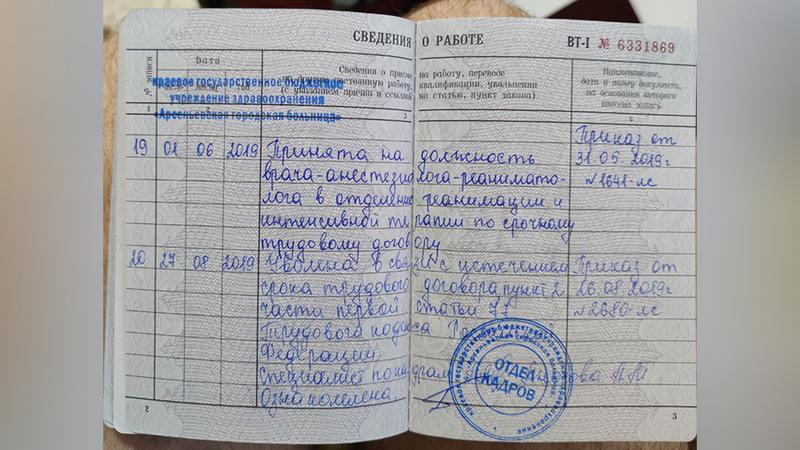 СВЕДЕНИЯ О РАБОТЕ
ВТ-I № 6331869
№ записи
Дата
Сведения о приеме на работу, переводе
на другую постоянную работу, квалификации, увольнении
(с указанием причин и ссылкой на статью, пункт закона)
Наименование,
дата и номер документа,
на основании которого
внесена запись
1
3
краевое государственное бюджетное
учреждение здравоохранения
«Арсеньевская городская больница»
19 01 06 2019 Принята на должность
врача-анестезиолога-реанимато-
лога в отделение реанимации и
интенсивной терапии по срочному
трудовому договору
Приказ от
31.05.2019г
№1641-лс
20 27 08 2019 Уволена в связи с истечением
срока трудового договора пункт 2
части первой статьи 77
Трудового кодекса
Федерации
Специалист по кадрам
Ознакомлена.
Приказ от
26.08.2019г
№2680-лс
ОТДЕЛ
КАДРОВ
2
3